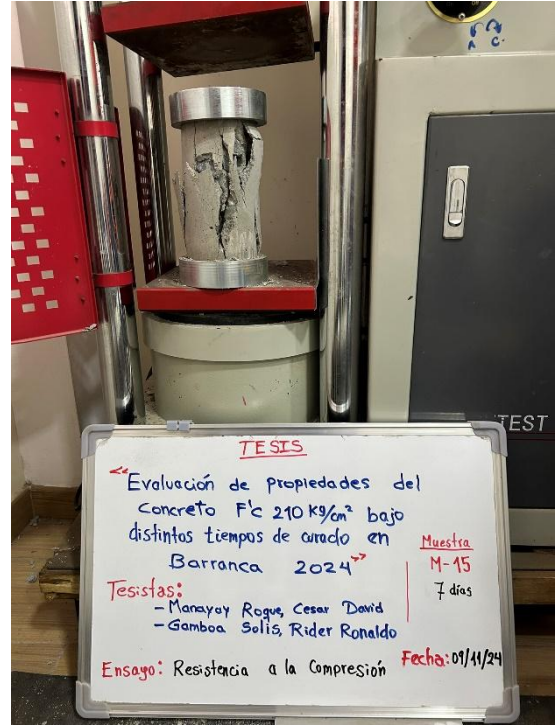 TEST
TESIS
"Evaluación de propiedades del
Concreto F'c 210 Kg/cm² bajo
distintos tiempos de curado en
Barranca 2024"
Muestra
M-15
7 días
Tesistas:
- Manayay Roque, Cesar David
- Gamboa Solis, Rider Ronaldo
Ensayo: Resistencia a la Compresión
Fecha: 09/11/24